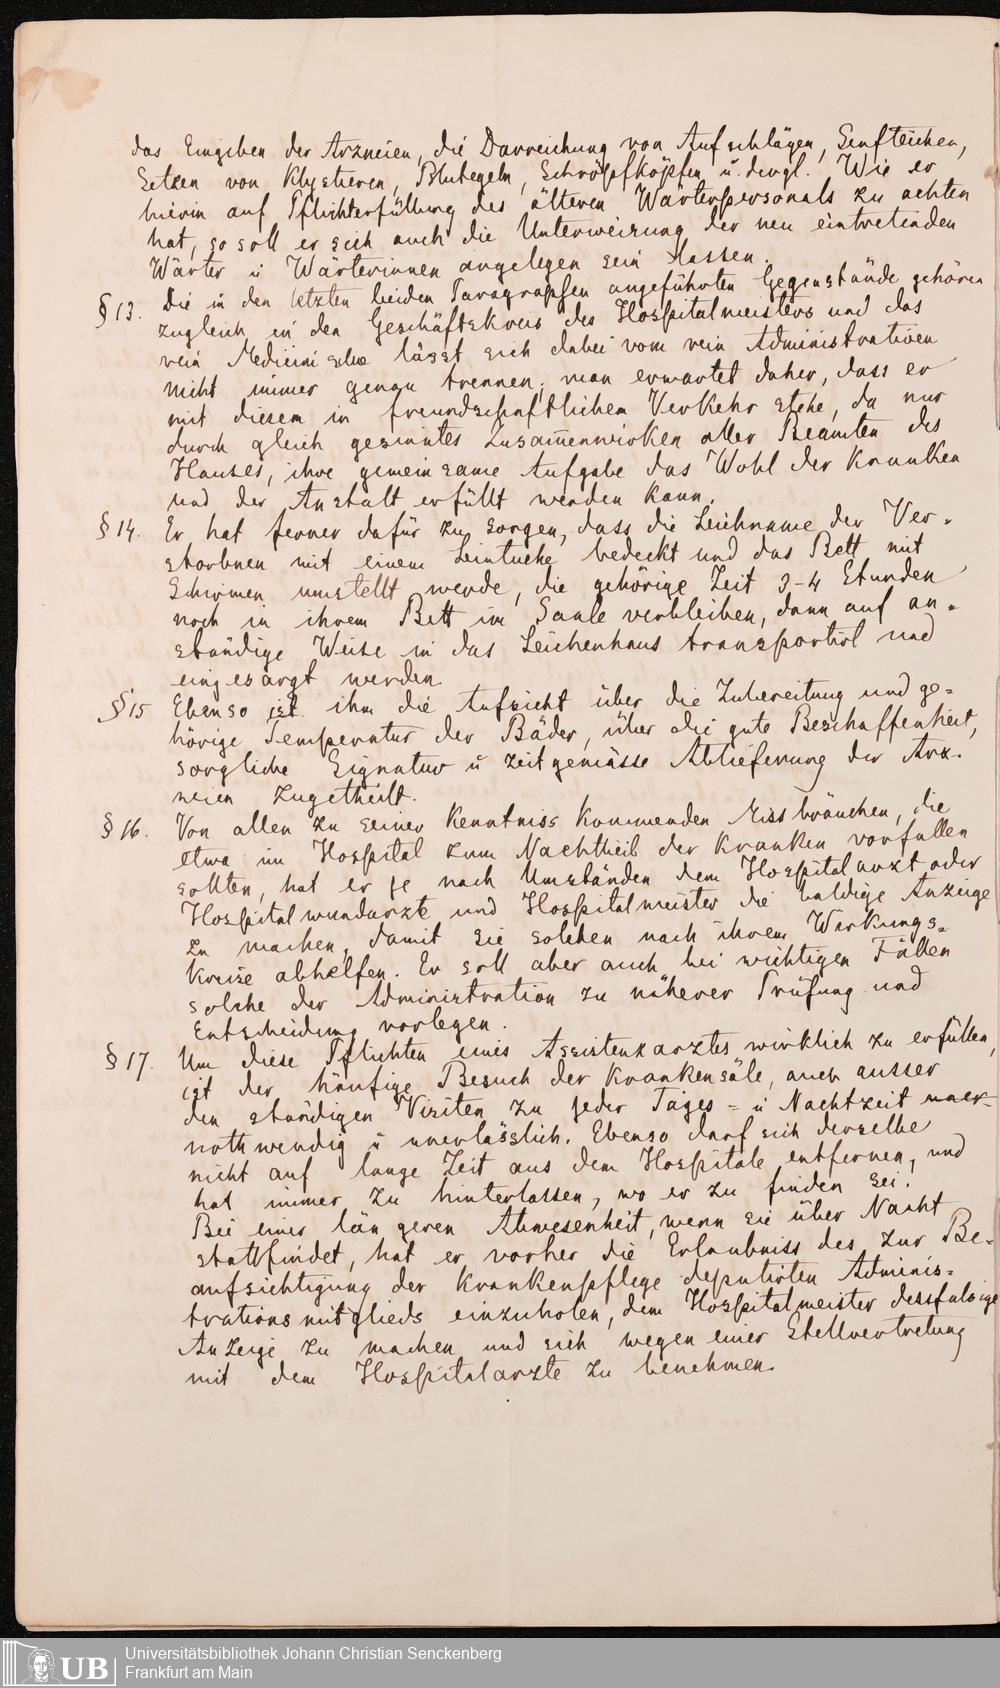 das Eingeben der Arzneien, die Darreichung von Aufschlägen, Senfteichen,
Setzen von Klystieren, Blutegeln, Schröpfköpfen u. dergl. Wie er
hierin auf Pflichterfüllung des älteren Wärterpersonals zu achten
hat, so soll er sich auch die Unterweisung der neu eintretenden
Wärter u Wärterinnen angelegen sein lassen.
§ 13. Die in den letzten beiden Paragraphen angeführten Gegenstände gehören
zugleich in den Geschäftskreis des Hospitalmeisters und das
rein Medicinische lässt sich dabei vom rein Administrativen
nicht immer genau trennen; man erwartet daher, dass er
mit diesem in freundschaftlichen Verkehr stehe, da nur
durch gleich gesinntes Zusam̅enwirken aller Beamten des
Hauses, ihre gemeinsame Aufgabe das Wohl der Kranken
und der Anstalt erfüllt werden kann.
§ 14. Er hat ferner dafür zu sorgen, dass die Leichname der Ver=
storbnen mit einem Leintuche bedeckt und das Bett mit
Schirmen umstellt werde, die gehörige Zeit 3-4 Stunden
noch in ihrem Bett im Saale verbleiben, dann auf an=
ständige Weise in das Leichenhaus transportirt und
eingesargt werden.
§ 15 Ebenso ist ihm die Aufsicht über die Zubereitung und ge=
hörige Temperatur der Bäder, über die gute Beschaffenheit,
sorgliche Signatur u zeitgemässe Ablieferung der Arz-
neien zugetheilt.
§ 16. Von allen zu seiner Kenntniss kommenden Missbräuchen, die
etwa im Hospital zum Nachtheil der Kranken vorfallen
sollten, hat er je nach Umständen dem Hospitalarzt oder
Hospitalwundarzte und Hospitalmeister die baldige Anzeige
zu machen, damit sie solchen nach ihrem Wirkungs=
kreise abhelfen. Er soll aber auch bei wichtigen Fällen
solche der Administration zu näherer Prüfung und
Entscheidung vorlegen.
§ 17. Um diese Pflichten eines Assistenzarztes wirklich zu erfüllen,
ist der häufige Besuch der Krankensäle, auch ausser
den ständigen Visiten zu jeder Tages = u Nachtzeit uner-
nothwendig u unerlässlich. Ebenso darf sich derselbe
nicht auf lange Zeit aus dem Hospitale entfernen, und
hat immer zu hinterlassen, wo er zu finden sei.
Bei einer längeren Abwesenheit, wenn sie über Nacht
stattfindet, hat er vorher die Erlaubniss des zur Be-
aufsichtigung der Krankenpflege deputirten Adminis=
trationsmitglieds einzuholen, dem Hospitalmeister dessfalsige
Anzeige zu machen und sich wegen einer Stellvertretung
mit dem Hospitalarzte zu benehmen.
UB
Universitätsbibliothek Johann Christian Senckenberg
Frankfurt am Main